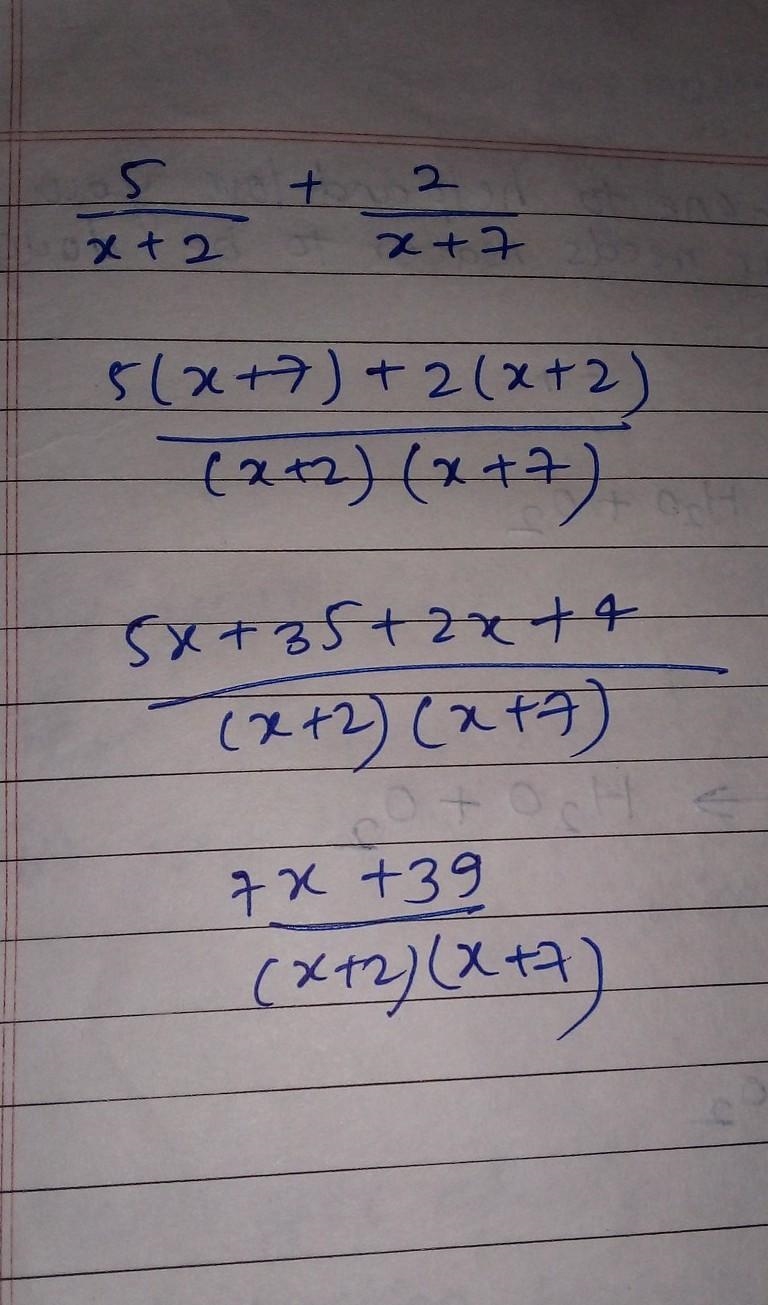 5 + 2
x + 2 x + 7
5(x+7) + 2(x+2)
(x+2) (x+7)
5x + 35 + 2x + 4
(x+2) (x+7)
7x + 39
(x+2)(x+7)